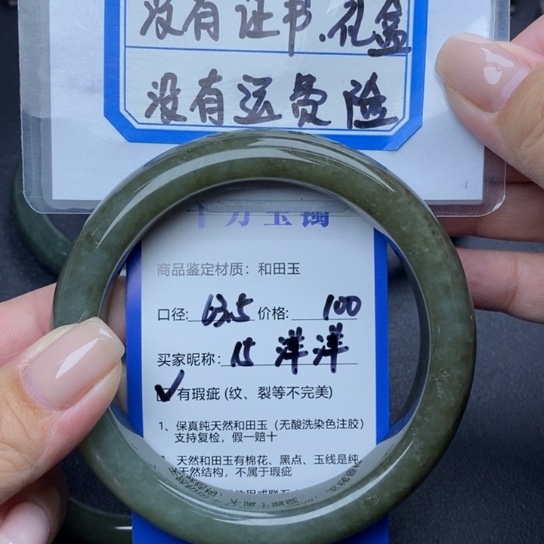 没有证书.礼盒
没有运费险
十万玉镯
商品鉴定材质：和田玉
口径: 63.5 价格: 100
买家昵称: 15 洋洋
有瑕疵 (纹、裂等不完美)
1、保真纯天然和田玉（无酸洗染色注胶）
支持复检，假一赔十
天然和田玉有棉花、黑点、玉线是纯
天然结构，不属于瑕疵